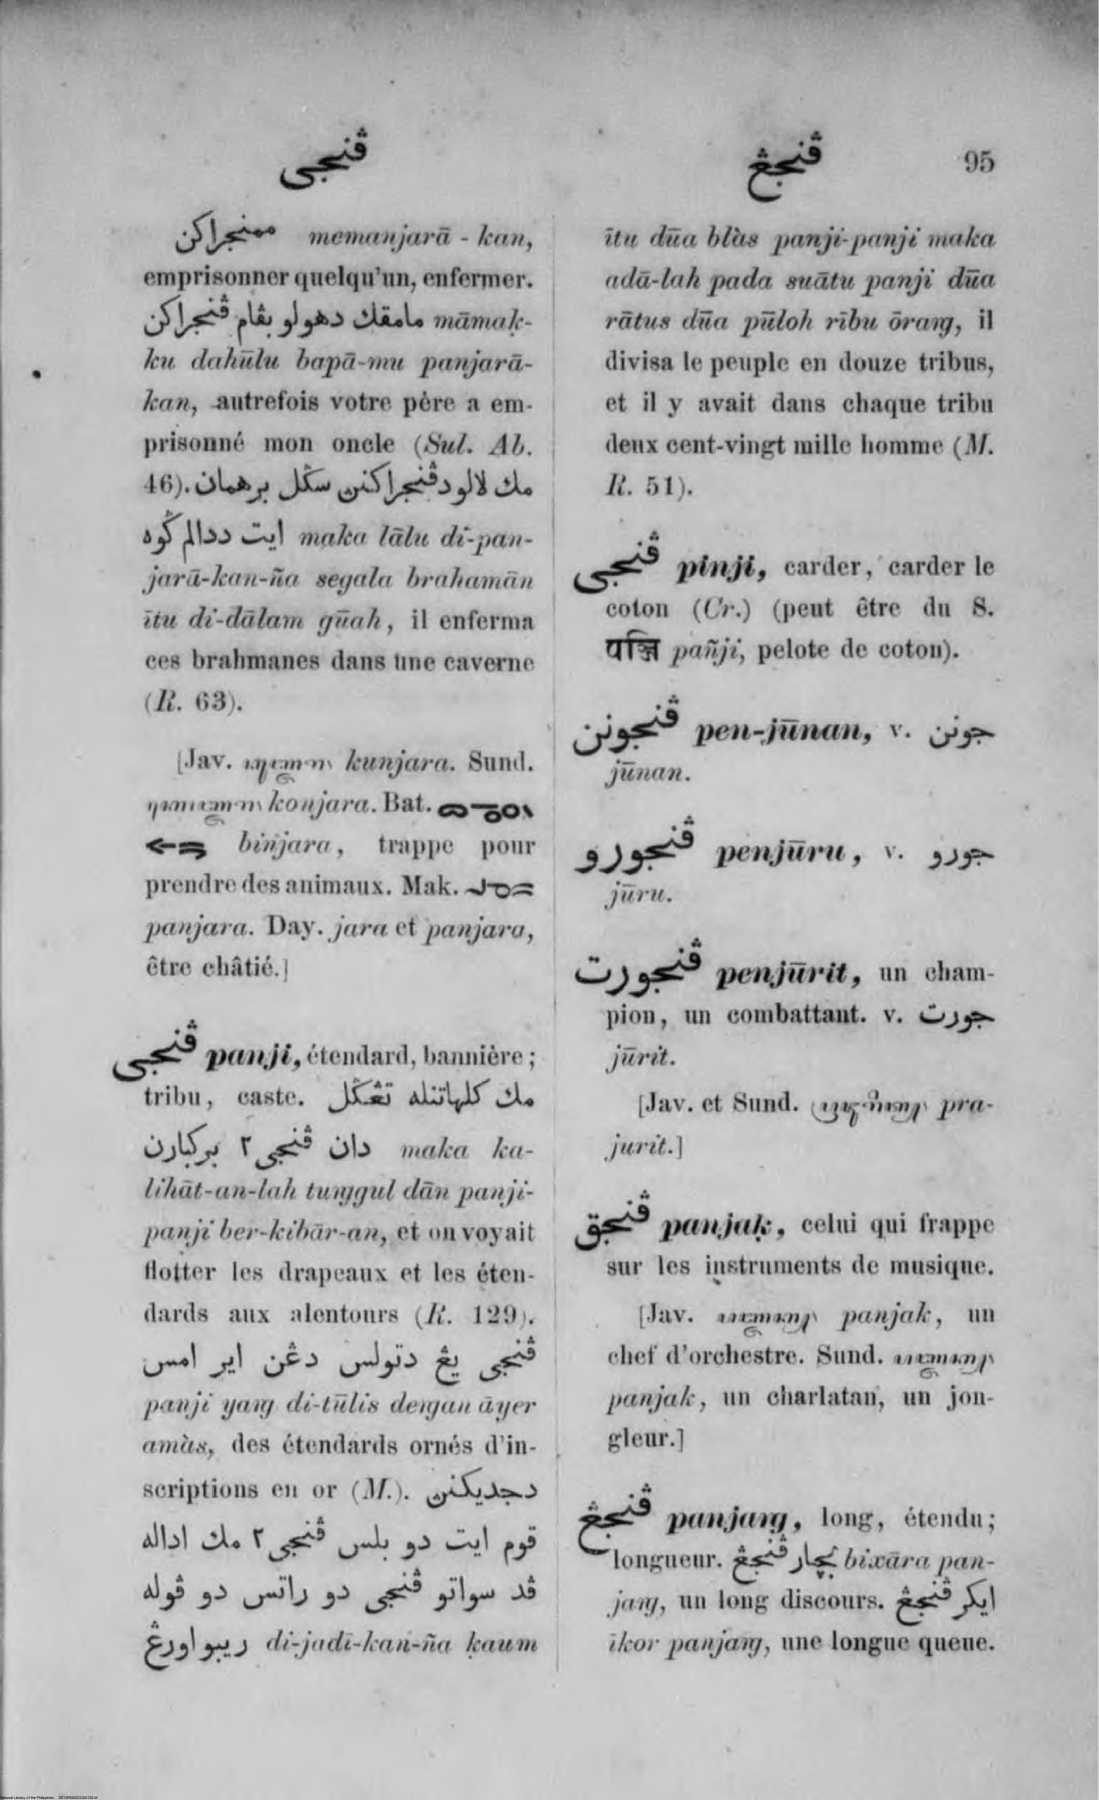 ڤنججى
ڤنجڠ 95
ممنجراكن memanjarā-kan,
emprisonner quelqu'un, enfermer.
مامقك دهولو بڤام ڤنجراكن māmaḳ-
ku dahūlu bapā-mu panjarā-
kan, autrefois votre père a em-
prisonné mon oncle (Sul. Ab.
46). مك لالو دڤنجراكنن سڬل برهمان
ايت ددالم ڬوه maka lālu di-pan-
jarā-kan-ña segala brahamān
ītu di-dālam gūah, il enferma
ces brahmanes dans une caverne
(R. 63).
[Jav. kunjara. Sund.
konjara. Bat.
binjara, trappe pour
prendre des animaux. Mak.
panjara. Day. jara et panjara,
être châtié.]
ڤنجى panji, étendard, bannière;
tribu, caste. مك كلهاتنله تڠڬل
دان ڤنجى٢ بركبارن maka ka-
lihāt-an-lah tuŋgul dān panji-
panji ber-kibār-an, et on voyait
flotter les drapeaux et les éten-
dards aux alentours (R. 129).
ڤنجى يڠ دتولس دڠن اير امس
panji yaŋ di-tūlis deŋan āyer
amàs, des étendards ornés d'in-
scriptions en or (M.). دجديكنن
قوم ايت دو بلس ڤنجى٢ مك اداله
ڤد سواتو ڤنجى دو راتس دو ڤوله
ريبو اورڠ di-jadī-kan-ña ḳaum
ītu dūa blàs panji-panji maka
adā-lah pada suātu panji dūa
rātus dūa pūloh rību ōraŋ, il
divisa le peuple en douze tribus,
et il y avait dans chaque tribu
deux cent-vingt mille homme (M.
R. 51).
ڤنجى pinji, carder, carder le
coton (Cr.) (peut être du S.
पञ्जि pañji, pelote de coton).
ڤنجونن pen-jūnan, v. جونن
jūnan.
ڤنجورو penjūru, v. جورو
jūru.
ڤنجورت penjūrit, un cham-
pion, un combattant. v. جورت
jūrit.
[Jav. et Sund. pra-
jurit.]
ڤنجق panjaḳ, celui qui frappe
sur les instruments de musique.
[Jav. panjak, un
chef d'orchestre. Sund.
panjak, un charlatan, un jon-
gleur.]
ڤنجڠ panjaŋ, long, étendu;
longueur. بچار ڤنجڠ bixāra pan-
jaŋ, un long discours. ايكر ڤنجڠ
īkor panjaŋ, une longue queue.